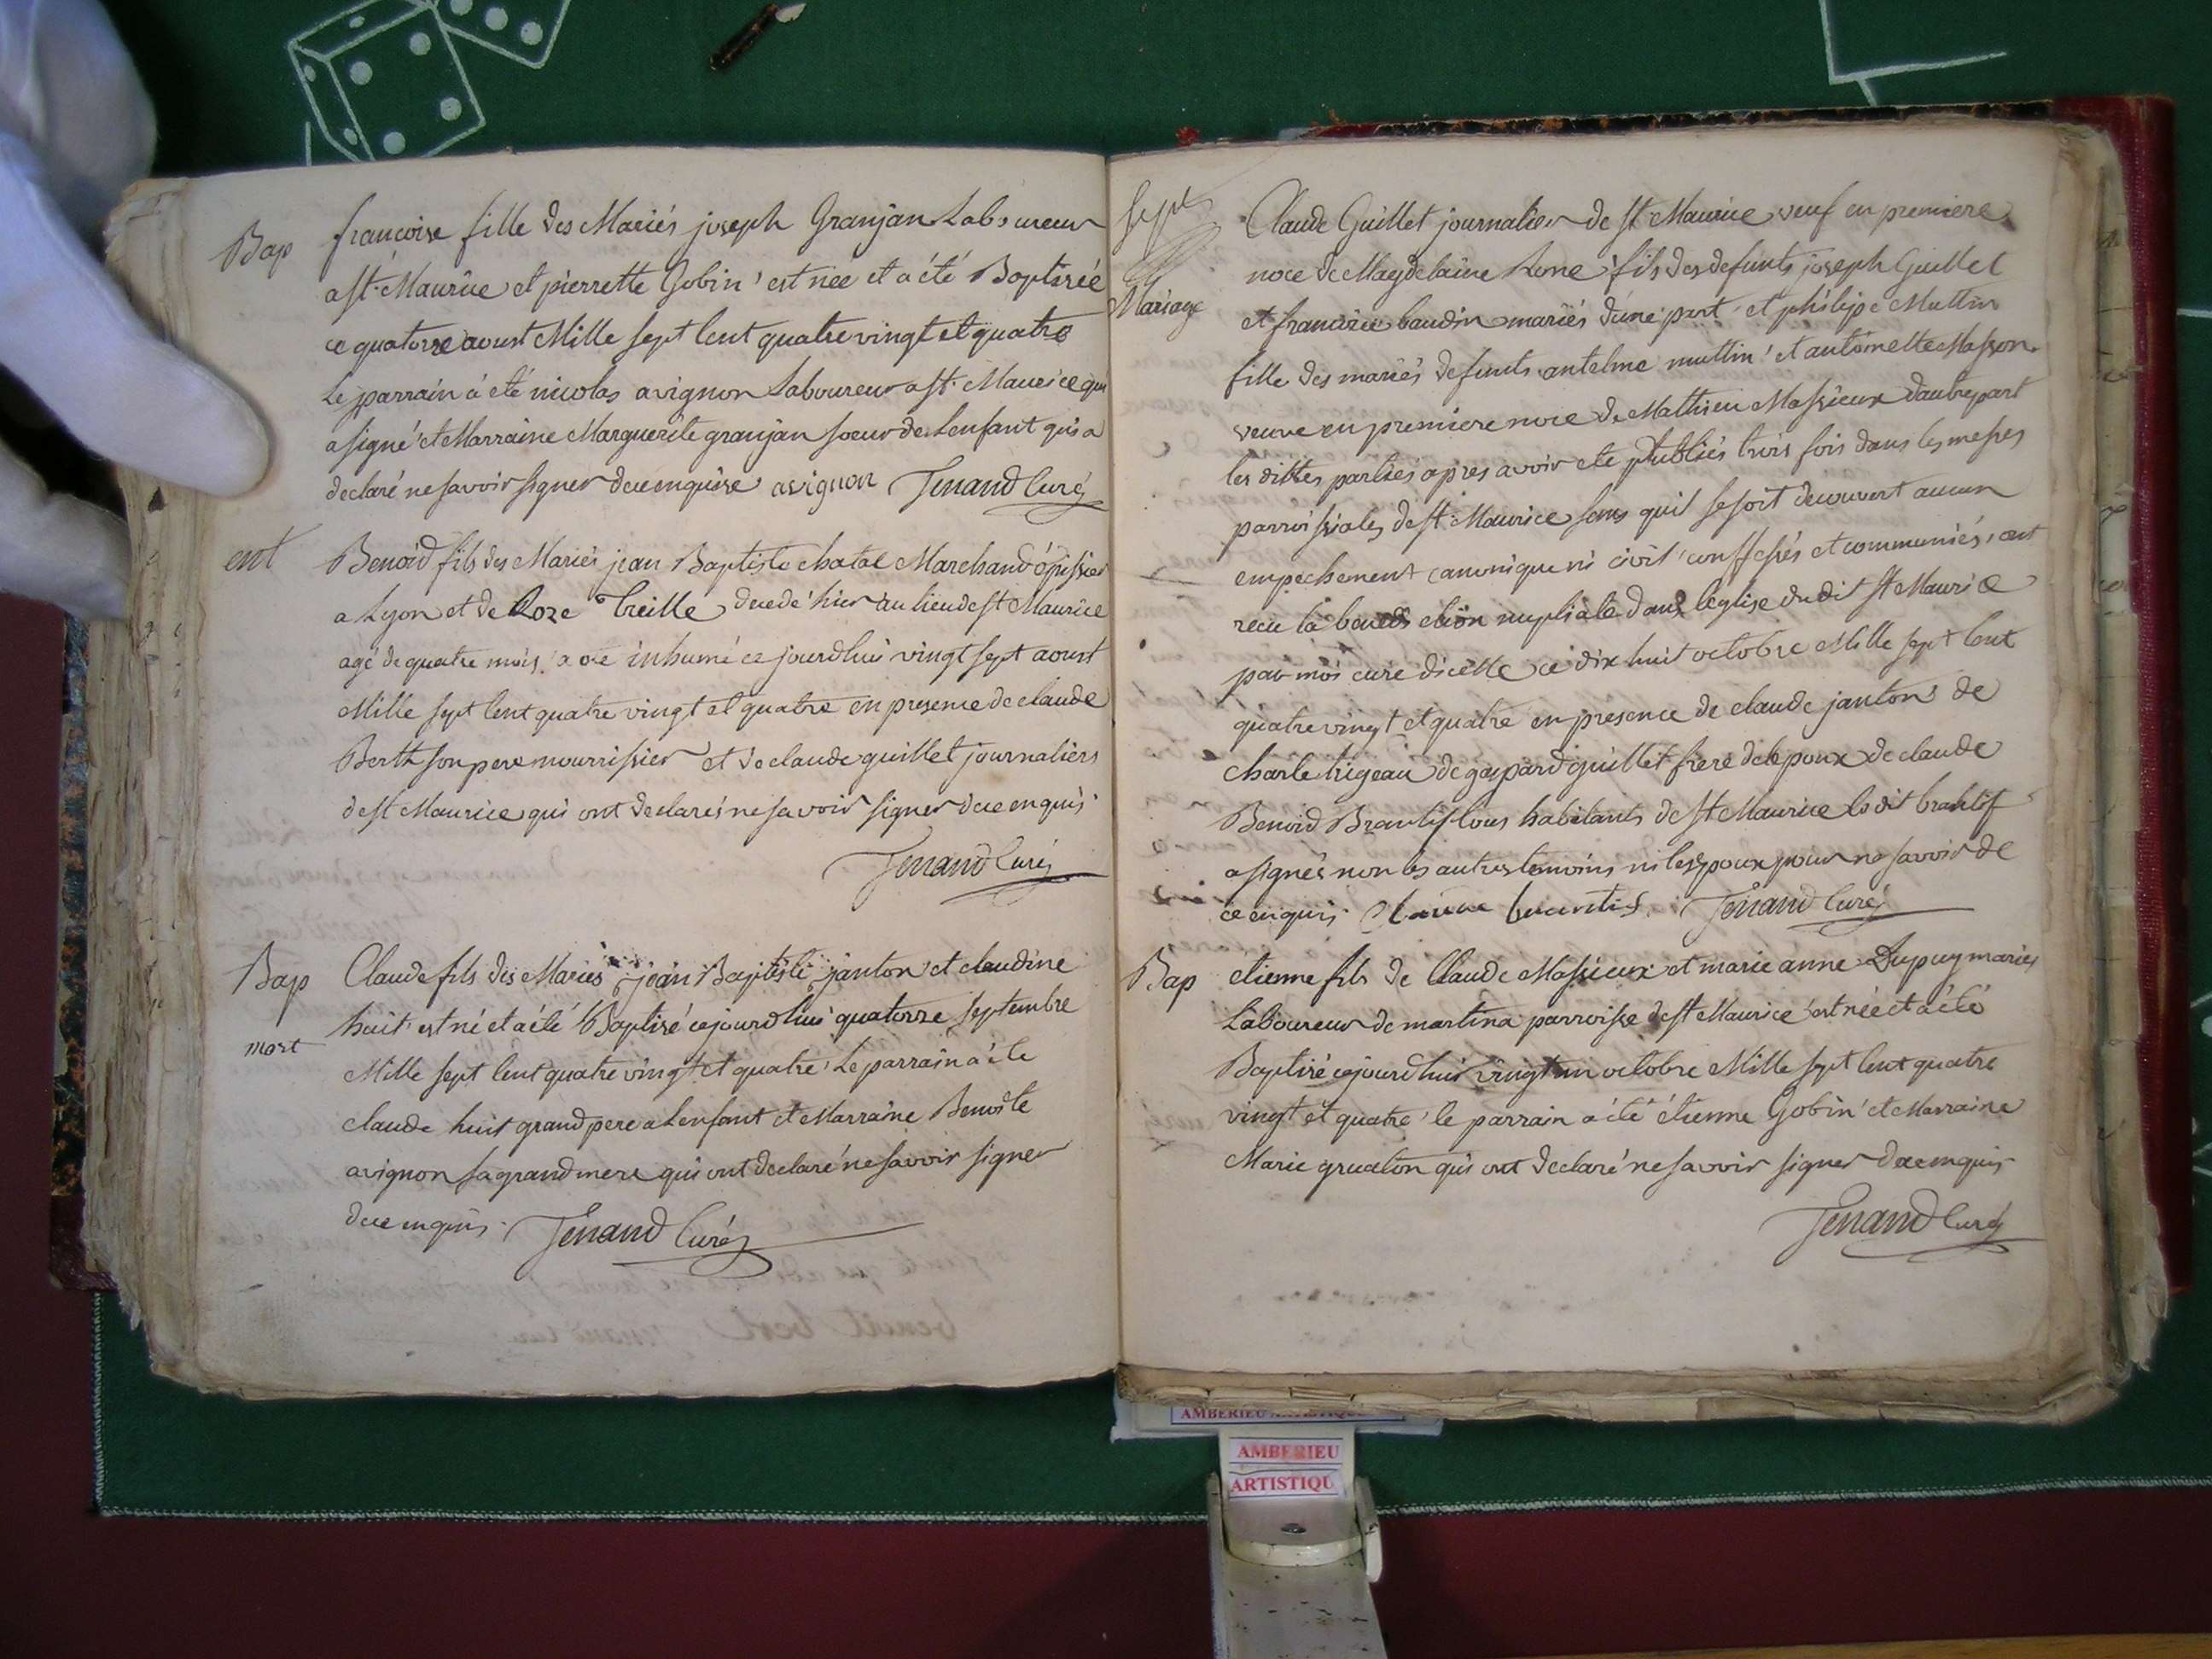 Bap
francoise fille des Mariés joseph Granjan Laboureur
a st Maurice et pierrette Gobin est née et a été Baptisée
ce quatorze aoust Mille sept cent quatre vingt et quatre
Le parrain a été nicolas avignon Laboureur a st Maurice qui
a signé et Marraine Marguerite granjan soeur de Lenfant qui a
declaré ne savoir signer de ce enquise avignon Tenand Curé
ent
Benoid fils des Mariés jean Baptiste chatal Marchand épissier
a Lyon et de Roze Treille decedé hier au lieu de st Maurice
agé de quatre mois a été inhumé ce jourdhui vingt sept aoust
Mille sept cent quatre vingt et quatre en presence de claude
Berth son pere nourrissier et de claude guillet journaliers
de st Maurice qui ont declarés ne savoir signer de ce enquis
Tenand Curé
Bap
mort
Claude fils des Mariés jean Baptiste janton et claudine
huit est né et a été Baptisé cejourdhui quatorze septembre
Mille sept cent quatre vingt et quatre Le parrain a été
claude huit grand pere a Lenfant et Marraine Benoite
avignon sa grand mere qui ont declaré ne savoir signer
de ce enquis Tenand Curé
sept
Mariage
Claude Guillet journalier de st Maurice veuf en premiere
noce de Magdelaine Rene fils des defunts joseph Guillet
et francoise baudin mariés d'une part et philipe Muttin
fille des mariés defunts antelme muttin et antoinette Masson
veuve en premiere noce de Mathieu Massieux d'autre part
les dittes parties apres avoir ete publiés trois fois dans les messes
parroissiales de st Maurice sans quil se soit decouvert aucun
empechement canonique ni civil confessés et communiés, ont
recu la benediction nuptiale dans l'eglise dudit st Maurice
par moi curé dicelle ce dix huit octobre Mille sept cent
quatre vingt et quatre en presence de claude janton de
charle trigeau de gaspard guillet frere de lepoux de claude
Benoid Brantif tous habitants de st Maurice ledit brantif
a signés non les autres temoins ni les epoux pour ne savoir de
ce enquis Claude brantif Tenand Curé
Bap
etienne fils de Claude Massieux et marie anne Dupuy mariés
Laboureur de martina parroisse de st Maurice est née et a été
Baptisé cejourdhui vingt un octobre Mille sept cent quatre
vingt et quatre le parrain a été étienne Gobin et Marraine
Marie gruaton qui ont declaré ne savoir signer de ce enquis
Tenand Curé
AMBERIEU
AMBERIEU
ARTISTIQU